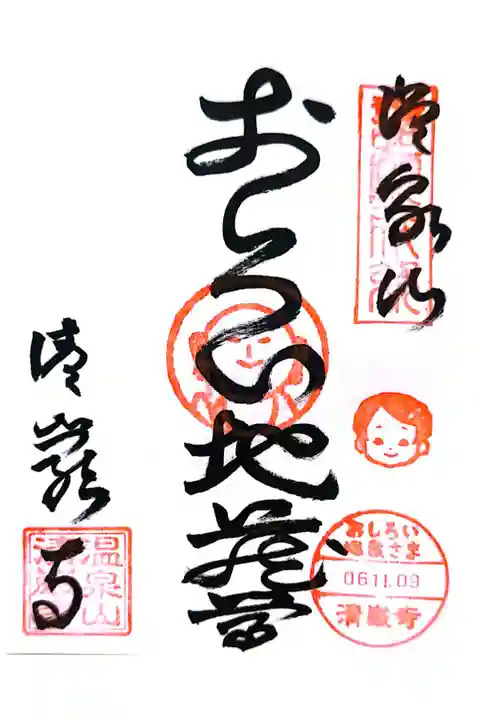 温泉山
おしろい地蔵尊
清巖寺
おしろい
地蔵さま
06.11.09
清巌寺
温泉山
清巌寺